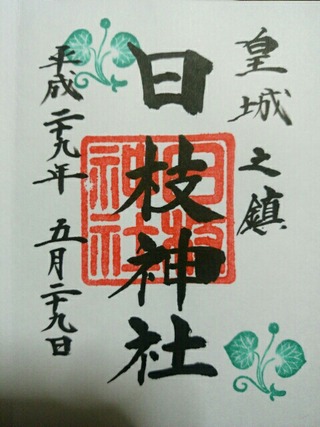 皇城之鎮
日枝神社
日枝神社
平成二十九年 五月二十九日